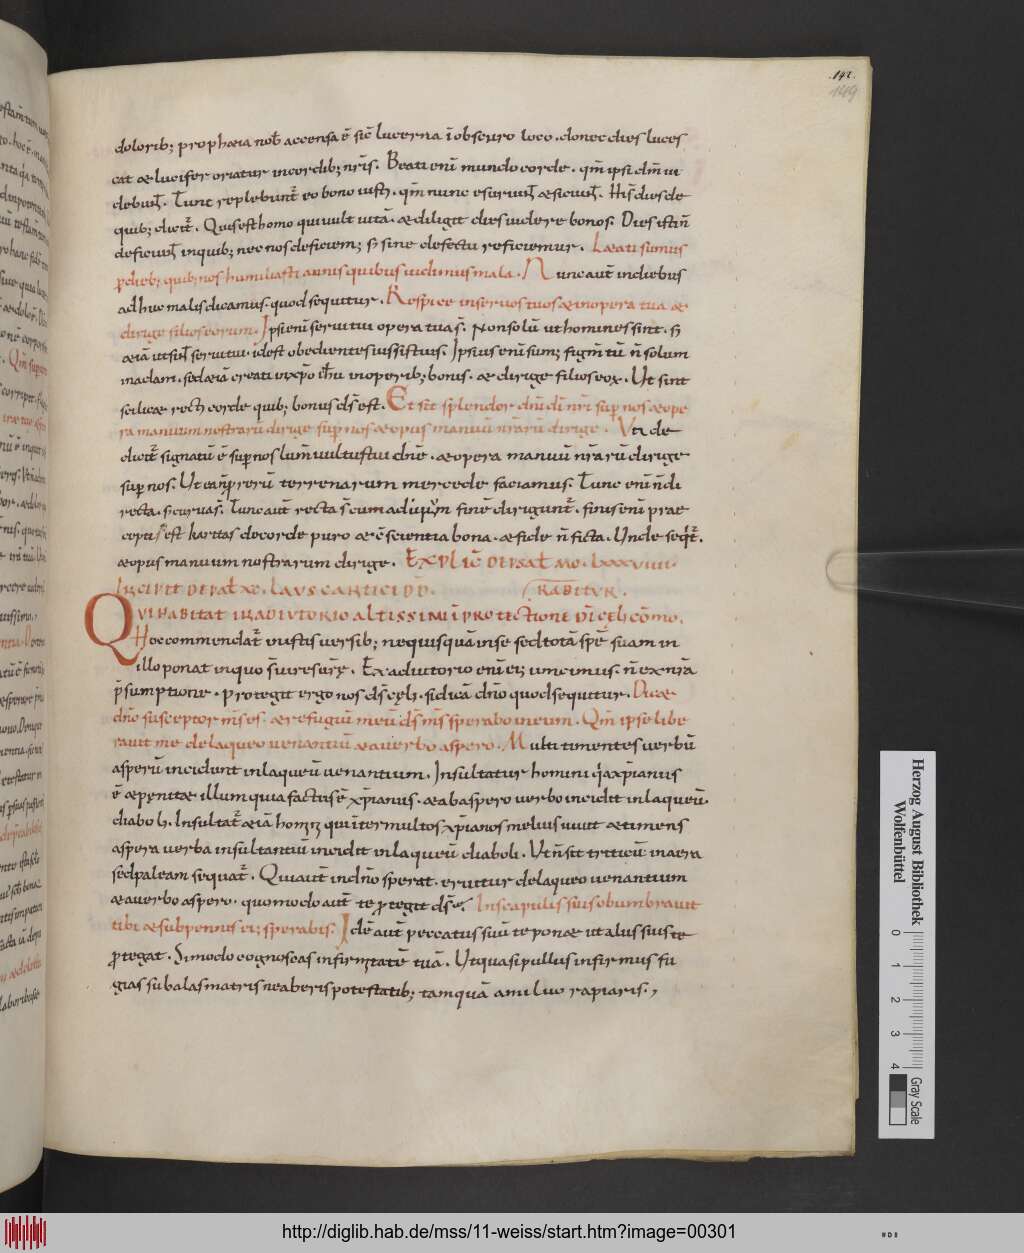 .142.
149
dolorib; prophaeia nob̄ accensa ē sic̄ lucerna ī obscuro loco. donec dies luces
cat & lucifer oriatur in cordib; nr̄is. Beati eni̅ mundo corde. qm̅ ipsi dm̅ ui
debun̅t. Tunc replebunt̄ eo bono iusti. qm̅ nunc esuriun̅t & sitiun̅t. His̄ dies de
quib; dicit̄. Quis est homo qui uult uitā. & diligit dies uidere bonos. Dies isti n̄
deficiun̅t inquib; nec nos deficiem; s̄ sine defectu reficiemur. Laetati sumus
p̄ dieb; quib; nos humiliasti annis quibus uidimus mala. Nunc aut̄ in diebus
adhuc malis dicamus. quod sequitur. Respice in seruos tuos & in opera tua &
dirige filios eorum. Ipsi eni̅ serui tui opera tua s̄. Non solū ut homines sint. s̄
&iā ut sin̅t serui tui. id est obedientes iussis tuis. Ipsius eni̅ sum; figm̄tū n̄ solum
in adam. sed &iā creati in xp̄o ih̄u in operib; bonis. & dirige filios eoꝝ. Ut sint
scilic& recti corde quib; bonus ds̄ est. Et sit splendor dn̄i dī nr̄i sup̄ nos & ope
ra manuum nostrarū dirige sup̄ nos & opus manuū nr̄arū dirige. Uti de
dicit̄ signatū ē sup̄ nos lum̄ uultus tui dn̄e. & opera manuū nr̄arū dirige
sup̄ nos. Ut ea n̄ p̄ rerū terrenarum mercede faciamus. Tunc eni̅ n̄ di
recta. s̄ curua s̄. Tunc aut̄ recta s̄ cum ad ipsum fine̅ dirigunt̄. finis eni̅ prae
cepti est karitas de corde puro & c̄scientia bona. & fide n̄ ficta. Unde seqt̄.
& opus manuum nostrarum dirige. EXPLIC̄ DE PSAL̄MO. LXXXVIIII.
INCIPIT DE PSAL̄ XC. LAUS CANTICI DD̄.
QUI HABITAT IN ADIUTORIO ALTISSIMI Ī PROTECTIONE DĪ CELI CŌMORABITUR.
Hoc commendat̄ in istis uersib; nequis quā in se sed totā spē suam in
illo ponat in quo s̄ uires nr̄ę. Ex adiutorio eni̅ ei; uincimus. n̄ ex nr̄a
p̄sumptione. protegit ergo nos ds̄ cęli. si dicā dn̄o quod sequitur. Dic&
dn̄o susceptor m̄s es. & refugiū meū ds̄ m̄s sperabo in eum. Qm̅ ipse libe
rauit me de laqueo uenantiū & a uerbo aspero. Multi timentes uerbū
asperū incidunt in laqueū uenantium. Insultatur homini q̄a xp̄ianus
ē & pęnit& illum quia factus ē xp̄ianus. & ab aspero uerbo incidit in laqueū
diaboli. Insultat̄ &iā homini qui inter multos xp̄ianos melius uiuit & timens
aspera uerba insultantiū incidit in laqueū diaboli. Ut n̄ sit triticū in area
sed paleam sequat̄. Qui aut̄ in dn̄o sperat. eruitur de laqueo uenantium
& a uerbo aspero. quomodo aut̄ te ꝓtegit ds̄. In scapulis suis obumbrauit
tibi & sub pennis ei; sperabis. Id ē aut̄ peccatus suū te pon& ut alis suis te
ꝓtegat. Si modo cognoscas infirmitatē tuā. Ut quasi pullus infirmus fu
gias sub alas matris ne aberis potestatib; tamquā a miluo rapiaris.,
Herzog August Bibliothek
Wolfenbüttel
0 1 2 3 4
Gray Scale
http://diglib.hab.de/mss/11-weiss/start.htm?image=00301